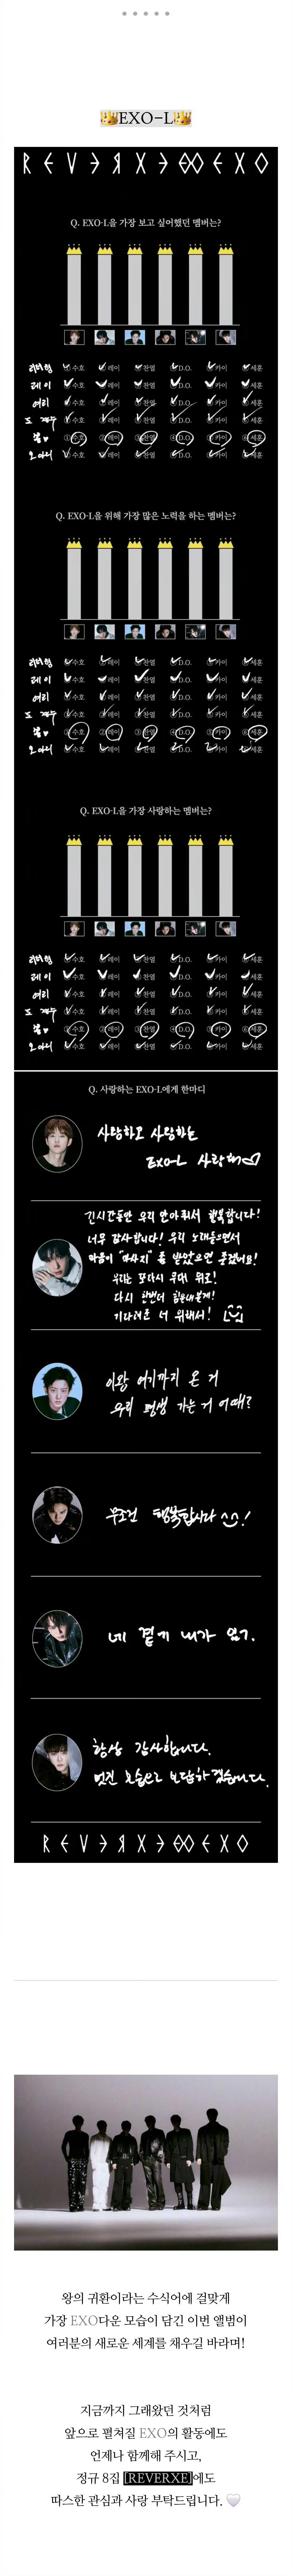 👑EXO-L👑
REVERXE EXO
Q. EXO-L을 가장 보고 싶어했던 멤버는?
리더형 ① 수호 ② 레이 ③ 찬열 ④ D.O. ⑤ 카이 ⑥ 세훈
레이 ① 수호 ② 레이 ③ 찬열 ④ D.O. ⑤ 카이 ⑥ 세훈
여리 ① 수호 ② 레이 ③ 찬열 ④ D.O. ⑤ 카이 ⑥ 세훈
도 ① 수호 ② 레이 ③ 찬열 ④ D.O. ⑤ 카이 ⑥ 세훈
① 수호 ② 레이 ③ 찬열 ④ D.O. ⑤ 카이 ⑥ 세훈
오 ① 수호 ② 레이 ③ 찬열 ④ D.O. ⑤ 카이 ⑥ 세훈
Q. EXO-L을 위해 가장 많은 노력을 하는 멤버는?
리더형 ① 수호 ② 레이 ③ 찬열 ④ D.O. ⑤ 카이 ⑥ 세훈
레이 ① 수호 ② 레이 ③ 찬열 ④ D.O. ⑤ 카이 ⑥ 세훈
여리 ① 수호 ② 레이 ③ 찬열 ④ D.O. ⑤ 카이 ⑥ 세훈
도 ① 수호 ② 레이 ③ 찬열 ④ D.O. ⑤ 카이 ⑥ 세훈
① 수호 ② 레이 ③ 찬열 ④ D.O. ⑤ 카이 ⑥ 세훈
오 ① 수호 ② 레이 ③ 찬열 ④ D.O. ⑤ 카이 ⑥ 세훈
Q. EXO-L을 가장 사랑하는 멤버는?
리더형 ① 수호 ② 레이 ③ 찬열 ④ D.O. ⑤ 카이 ⑥ 세훈
레이 ① 수호 ② 레이 ③ 찬열 ④ D.O. ⑤ 카이 ⑥ 세훈
여리 ① 수호 ② 레이 ③ 찬열 ④ D.O. ⑤ 카이 ⑥ 세훈
도 ① 수호 ② 레이 ③ 찬열 ④ D.O. ⑤ 카이 ⑥ 세훈
① 수호 ② 레이 ③ 찬열 ④ D.O. ⑤ 카이 ⑥ 세훈
오 ① 수호 ② 레이 ③ 찬열 ④ D.O. ⑤ 카이 ⑥ 세훈
Q. 사랑하는 EXO-L에게 한마디
사랑하고 사랑하는
EXO-L 사랑해♡
긴시간동안 우리 안아줘서 행복합니다!
너무 감사합니다! 우리 노래들으면서
마음이 "마사지"를 받았으면 좋겠네요!
우리는 또다시 무대 위로!
다시 한번더 힘내볼게!
기다려온 너 위해서!
이왕 여기까지 온 거
우리 평생 가는 거 어때?
무조건 행복합시다 ^^!
네 곁에 내가 있기.
항상 감사합니다.
멋진 모습으로 보답하겠습니다.
REVERXE EXO
왕의 귀환이라는 수식어에 걸맞게
가장 EXO다운 모습이 담긴 이번 앨범이
여러분의 새로운 세계를 채우길 바라며!
지금까지 그래왔던 것처럼
앞으로 펼쳐질 EXO의 활동에도
언제나 함께해 주시고,
정규 8집 [REVERXE]에도
따스한 관심과 사랑 부탁드립니다. 🤍